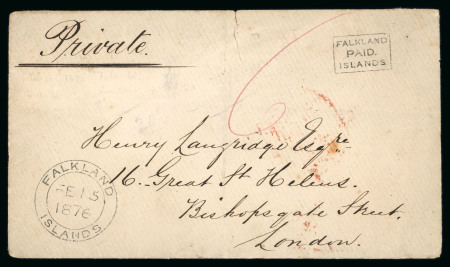 Private.
FALKLAND
PAID.
ISLANDS
6
Henry Langridge Esqre
16. Great St Helens.
Bishopsgate Street.
London.
FALKLAND
FE 15
1876
ISLANDS